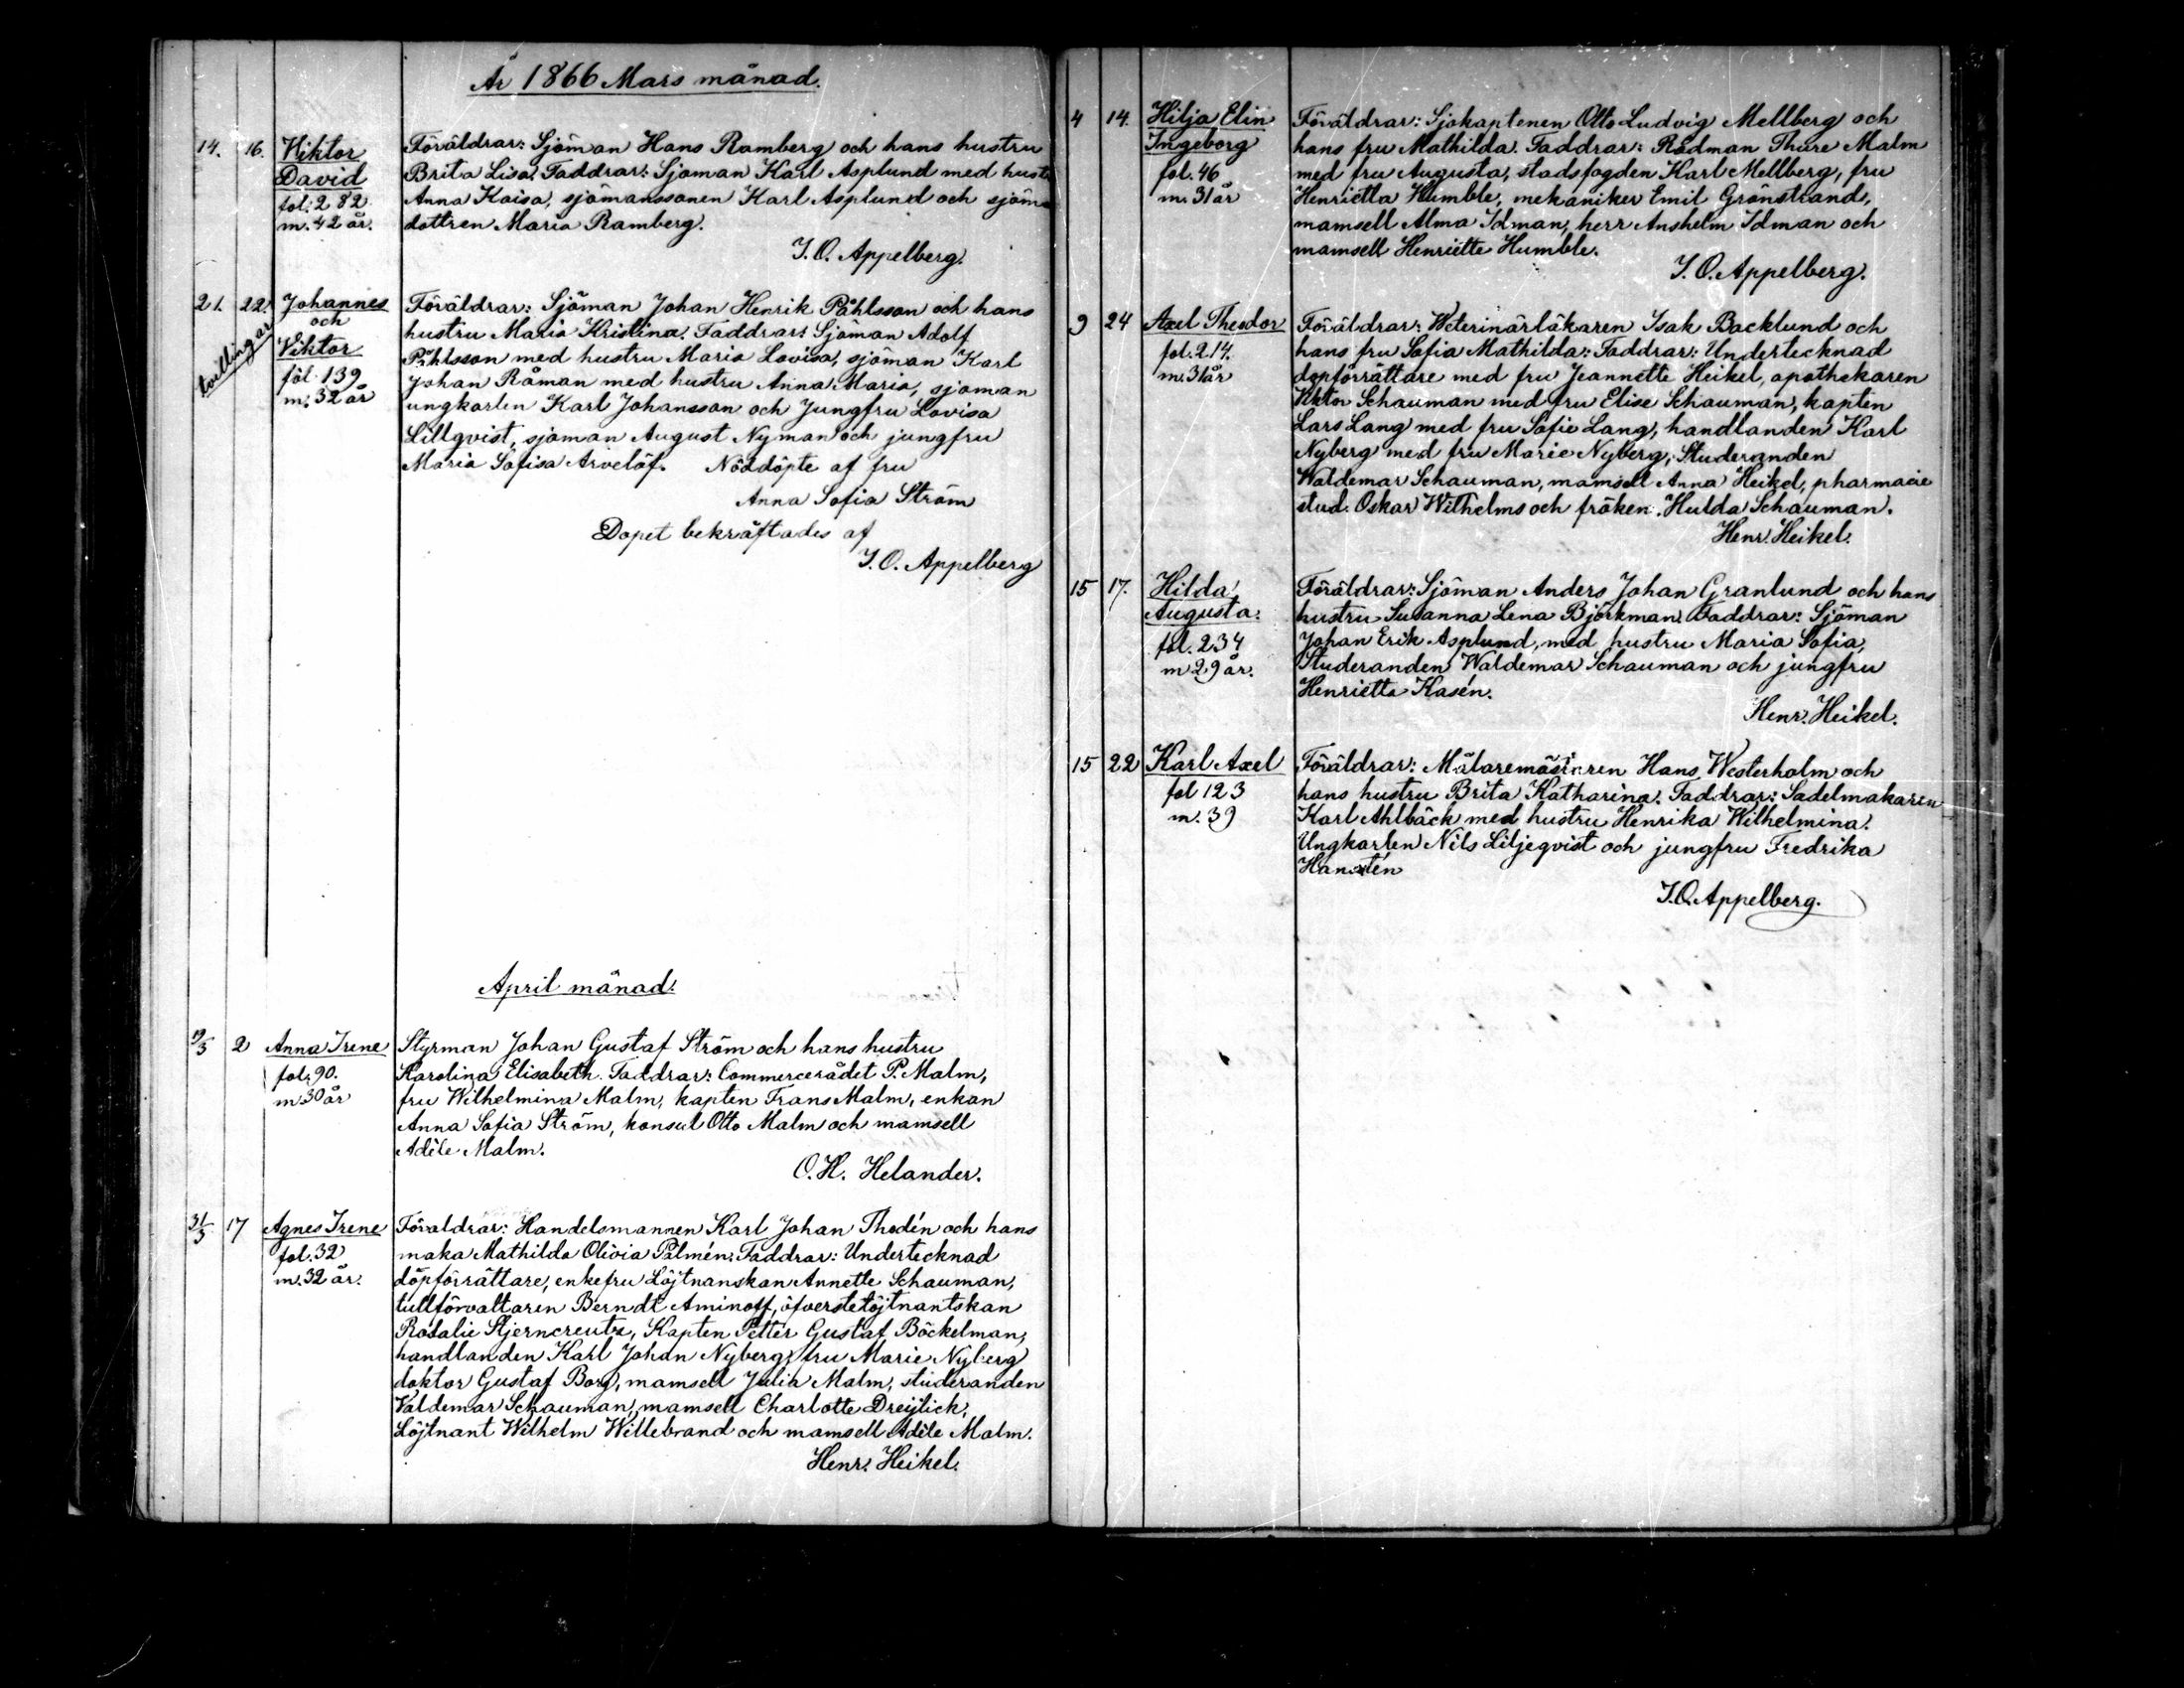 År 1866 Mars månad.
14. 16. Viktor Föräldrar: Sjöman Hans Ramberg och hans hustru
David Brita Lisa. Faddrar: Sjöman Karl Asplund med hust
fol: 282 Anna Kaisa, sjömanssonen Karl Asplund och sjöm
m. 42 år. dottren Maria Ramberg.
J. O. Appelberg.
21. 22. Johannes Föräldrar: Sjöman Johan Henrik Påhlsson och hans
tvillingar
och hustru Maria Kristina. Faddrar: Sjöman Adolf
Viktor Påhlsson med hustru Maria Lovisa, sjöman Karl
fol 139 Johan Råman med hustru Anna Maria, sjöman
m. 32 år ungkarlen Karl Johansson och Jungfru Lovisa
Lillqvist, sjöman August Nyman och jungfru
Maria Sofisa Arvelöf. Nöddöpte af fru
Anna Sofia Ström
Dopet bekräftades af
J. O. Appelberg
April månad.
19/3 2 Anna Irene Styrman Johan Gustaf Ström och hans hustru
fol. 90. Karolina Elisabeth. Faddrar: Commercerådet P. Malm,
m 30 år fru Wilhelmina Malm, kapten Frans Malm, enkan
Anna Sofia Ström, konsul Otto Malm och mamsell
Adèle Malm.
O. H. Helander.
31/3 17 Agnes Irene Föraldrar: Handelsmannen Karl Johan Thodén och hans
fol. 32 maka Mathilda Olivia Palmén. Faddrar: Undertecknad
m. 32 år. döpförrättare, enkefru Löjtnanskan Annette Schauman,
tullförvaltaren Berndt Aminoff, öfverstelöjtnantskan
Rosalie Stjerncreutz, Kapten Petter Gustaf Böckelman,
handlanden Karl Johan Nyberg, fru Marie Nyberg
doktor Gustaf Borg, mamsell Julia Malm, studeranden
Valdemar Schauman, mamsell Charlotte Dreijlick,
Löjtnant Wilhelm Willebrand och mamsell Adèle Malm.
Henr. Heikel.
4 14. Hilja Elin Föräldrar: Sjökaptenen Otto Ludvig Mellberg och
Ingeborg hans fru Mathilda. Faddrar: Rådman Thure Malm
fol. 46 med fru Augusta, stadsfogden Karl Mellberg, fru
m. 31 år Henrietta Humble, mekaniker Emil Grönstrand,
mamsell Alma Idman, herr Anshelm Idman och
mamsell Henriette Humble.
J. O. Appelberg.
9 24 Axel Theodor Föräldrar: Weterinärläkaren Isak Backlund och
fol: 214. hans fru Sofia Mathilda: Faddrar: Undertecknad
m. 31 år dopförrättare med fru Jeannette Heikel, apothekaren
Viktor Schauman med fru Elise Schauman, kapten
Lars Lang med fru Sofie Lang, handlanden Karl
Nyberg med fru Marie Nyberg, Studeranden
Waldemar Schauman, mamsell Anna Heikel, pharmacie
stud. Oskar Wilhelms och fröken Hulda Schauman.
Henr. Heikel.
15 17. Hilda Föräldrar: Sjöman Anders Johan Granlund och hans
Augusta. hustru Susanna Lena Björkman. Faddrar: Sjöman
fol. 234 Johan Erik Asplund, med hustru Maria Sofia,
m 29 år. Studeranden Waldemar Schauman och jungfru
Henrietta Kasén.
Henr. Heikel.
15 22 Karl Axel Föräldrar: Målaremästaren Hans Westerholm och
fol 123 hans hustru Brita Katharina. Faddrar: Sadelmakaren
m. 39 Karl Ahlbäck med hustru Henrika Wilhelmina.
Ungkarlen Nils Liljeqvist och jungfru Fredrika
Hanstén
J. O. Appelberg.